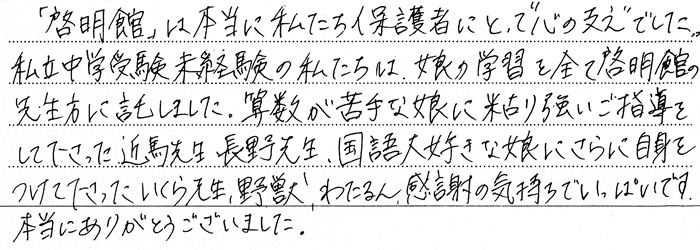 「啓明館」は本当に私たち保護者にとって“心の支え”でした。
私立中学受験未経験の私たちは、娘の学習を全て啓明館の
先生方に託しました。算数が苦手な娘に粘り強いご指導を
して下さった近馬先生、長野先生、国語大好きな娘にさらに自身を
つけて下さったいくら先生、野獣、わたるん、感謝の気持ちでいっぱいです。
本当にありがとうございました。